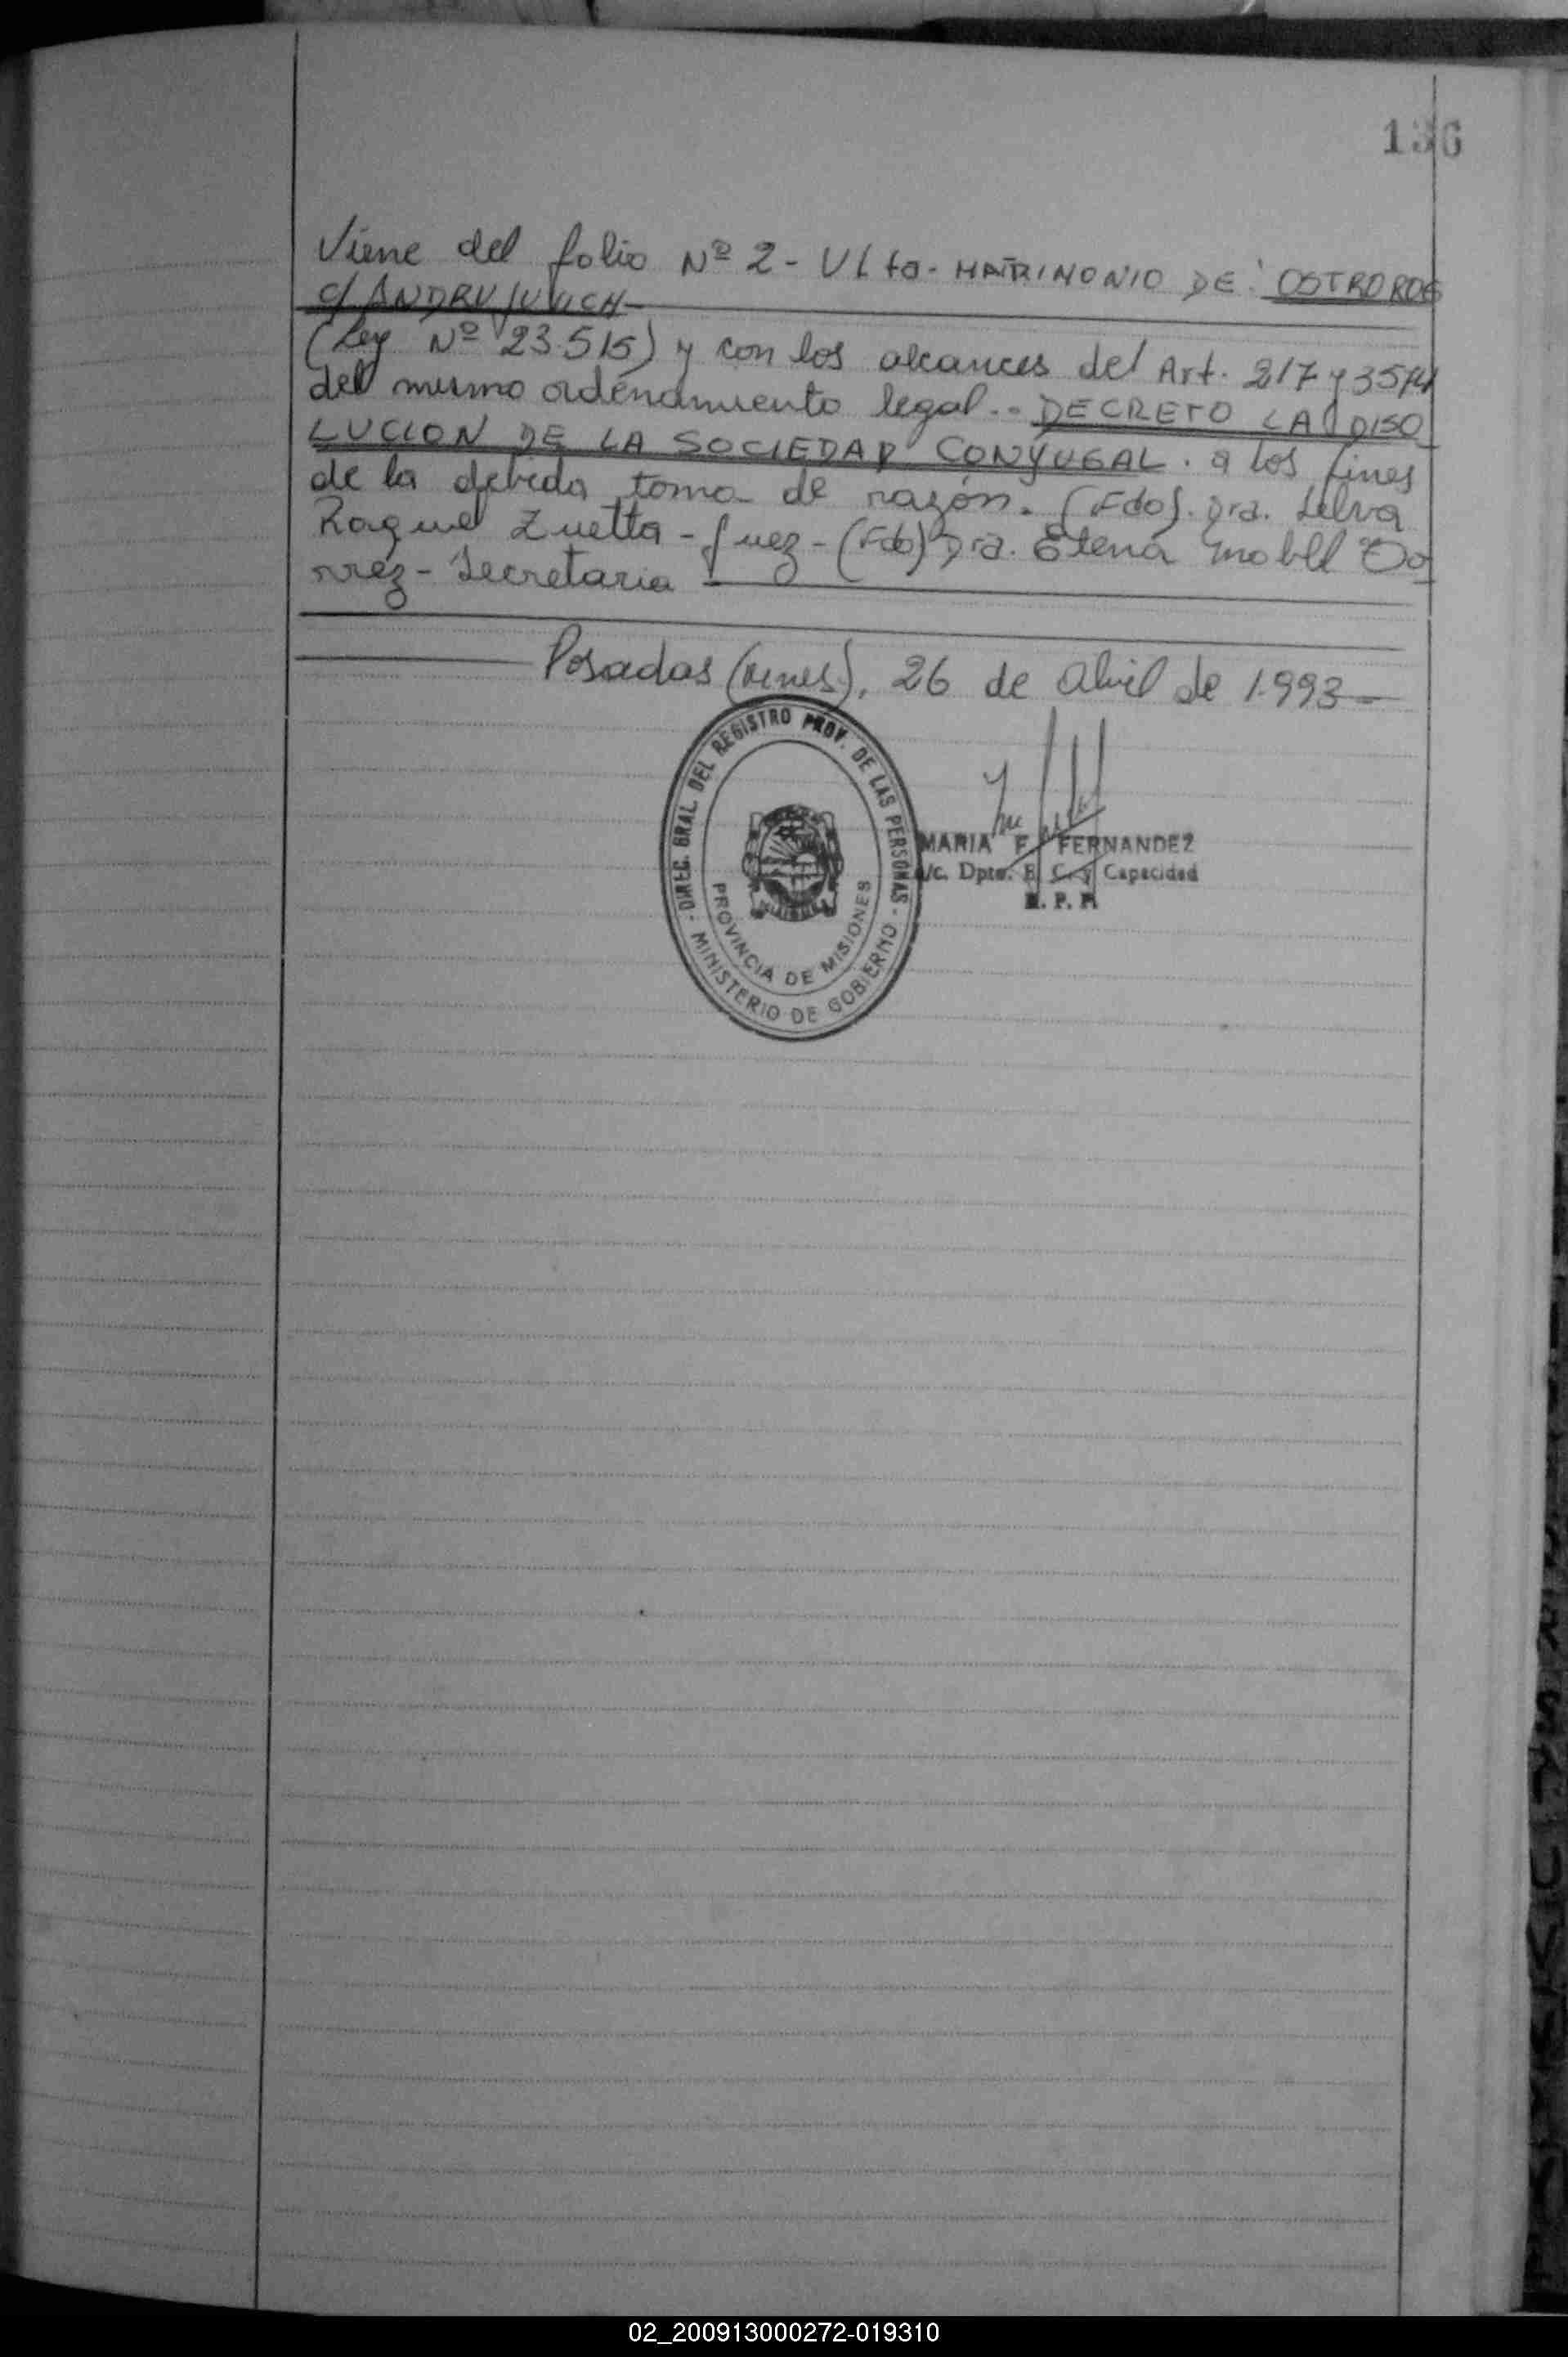 136
Viene del folio Nº 2 - Vlto - MATRIMONIO DE: OSTROROG
c/ ANDRUJUVICH
(Ley Nº 23.515) y con los alcances del Art. 217 y 3574
del mismo ordenamiento legal.- DECRETO LA DISO
LUCION DE LA SOCIEDAD CONYUGAL. a los fines
de la debida toma de razón. (Fdo). Dra. Selva
Raquel Zuetta - Juez - (Fdo) Dra. Elena Mabel To
rrez - Secretaria
Posadas (Mnes), 26 de abril de 1.993
DIREC. GRAL. DEL REGISTRO PROV. DE LAS PERSONAS
MINISTERIO DE GOBIERNO
PROVINCIA DE MISIONES
MARIA F. FERNANDEZ
a/c. Dpto. E. C. y Capacidad
R. P. P.
02_200913000272-019310